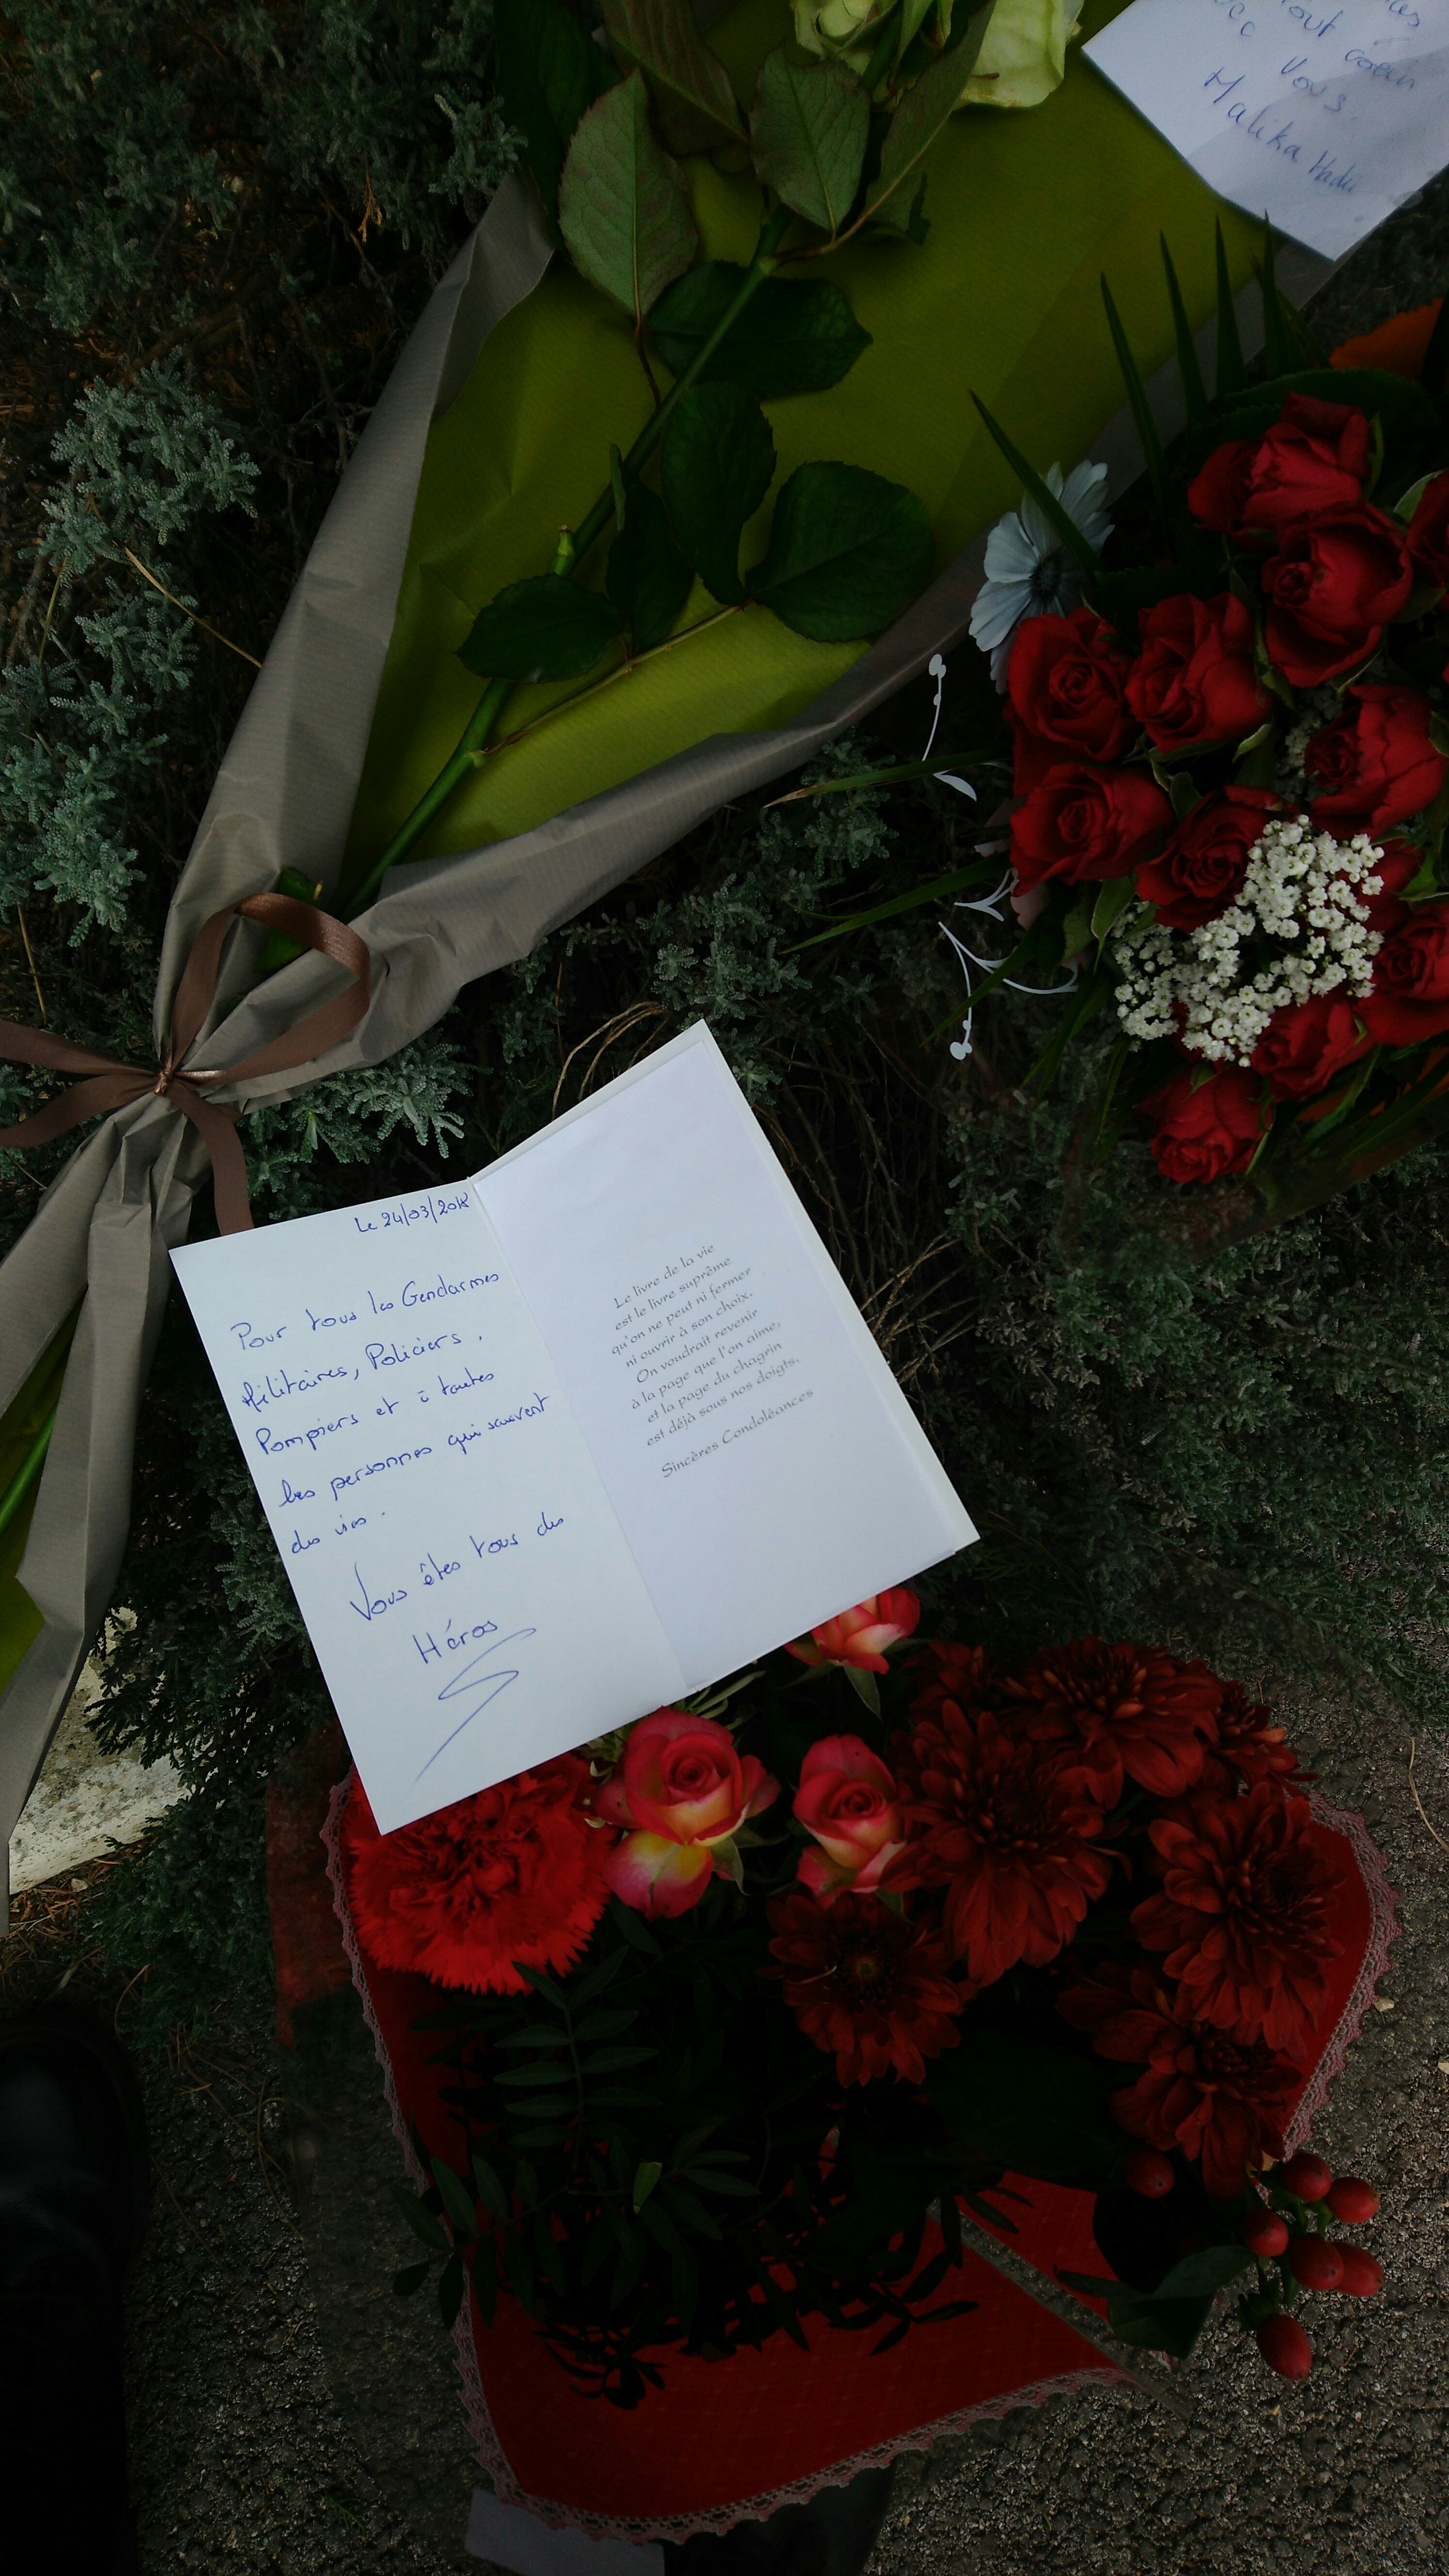 tout coeur
Vous.
Malika
Le 24/03/2018
Pour tous les Gendarmes
Militaires, Policiers.
Pompiers et à toutes
les personnes qui sauvent
des vies.
Vous êtes tous des
Héros
Le livre de la vie
est le livre suprême
qu'on ne peut ni fermer
ni ouvrir à son choix.
On voudrait revenir
à la page que l'on aime,
et la page du chagrin
est déjà sous nos doigts.
Sincères Condoléances